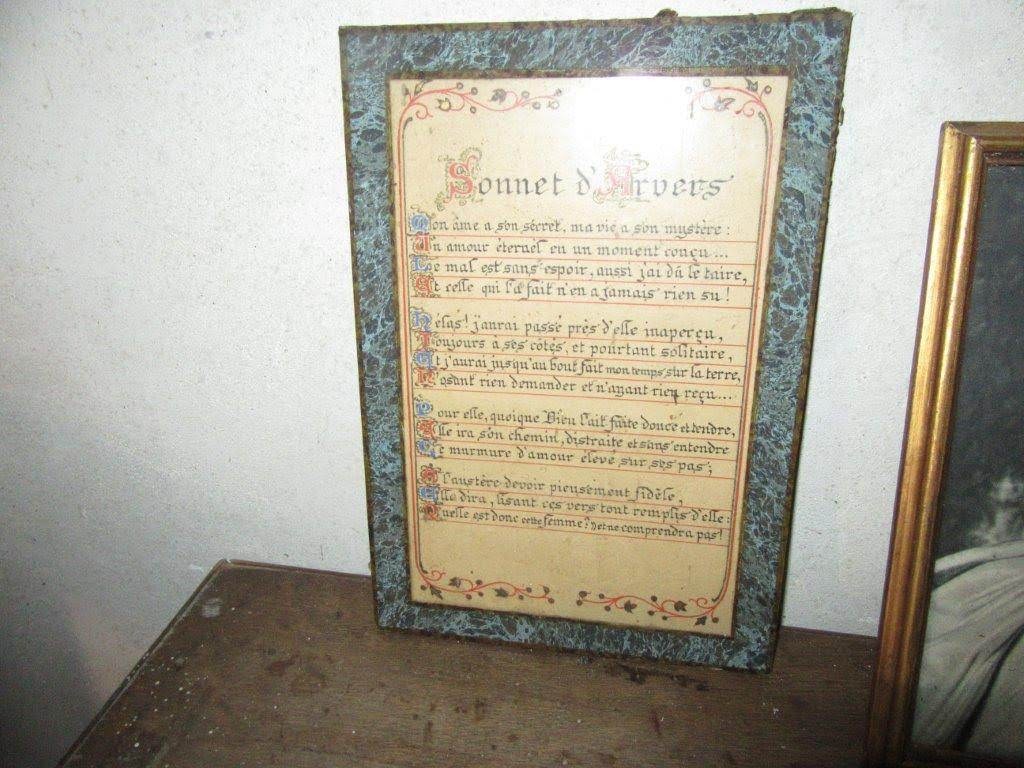 Sonnet d'Arvers
Mon âme a son secret, ma vie a son mystère :
Un amour éternel en un moment conçu...
Le mal est sans espoir, aussi j'ai dû le taire,
Et celle qui l'a fait n'en a jamais rien su !
Hélas ! j'aurai passé près d'elle inaperçu,
Toujours à ses côtés, et pourtant solitaire,
Et j'aurai jusqu'au bout fait mon temps sur la terre,
N'osant rien demander et n'ayant rien reçu...
Pour elle, quoique Dieu l'ait faite douce et tendre,
Elle ira son chemin, distraite et sans entendre
Ce murmure d'amour élevé sur ses pas ;
A l'austère devoir pieusement fidèle,
Elle dira, lisant ces vers tout remplis d'elle :
Quelle est donc cette femme ? et ne comprendra pas !